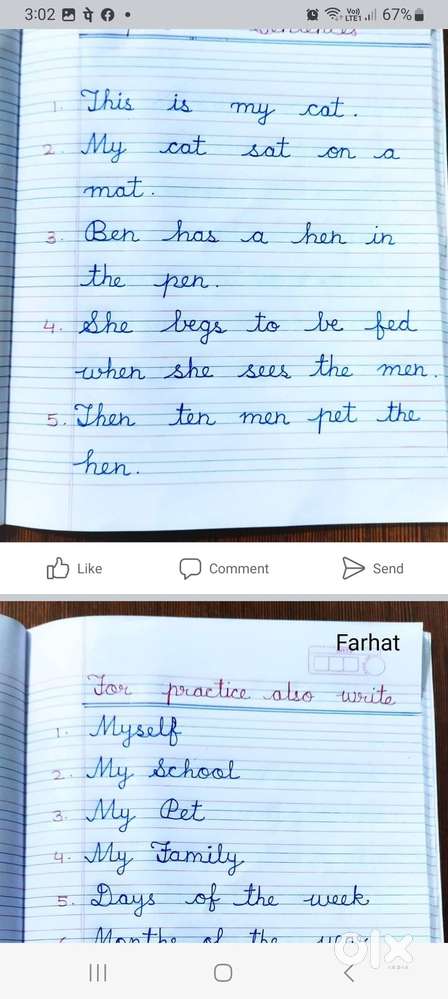 3:02 67%
sentences
1. This is my cat.
2. My cat sat on a
mat.
3. Ben has a hen in
the pen.
4. She begs to be fed
when she sees the men.
5. Then ten men pet the
hen.
Like Comment Send
Farhat
For practice also write
1. Myself
2. My School
3. My Pet
4. My Family
5. Days of the week
6. Months of the year
olx
INDIA